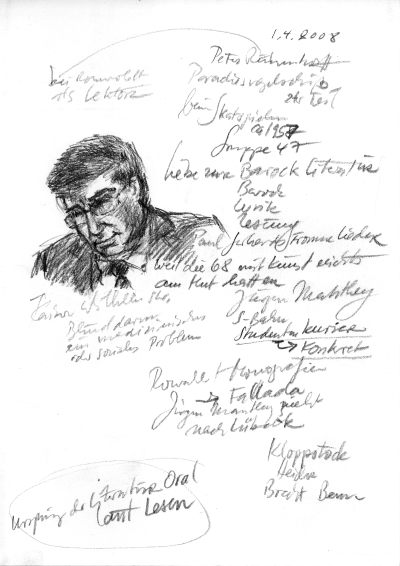 1.4.2008
Peter Rühmkorf
bei Rowohlt
als Lektor
Paradiesvogelschiß
beim Skatspielen
ca 1957
Gruppe 47
Liebe zur Barock Literatur
Barock
Lyrik
Lesung
Paul Gerhardt fromme Lieder
weil die 68 mit Kunst nichts
am Hut hatten
Jürgen Manthey
S-Bahn
Blind darum
ein medizinisches
oder soziales Problem
Studentenkurier
→ Konkret
Rowohlt Monografien
→ Fallada
Jürgen Manthey zieht
nach Lübeck
Kloppstock
Heine
Brecht Benn
Ursprung der Literatur Oral
laut Lesen